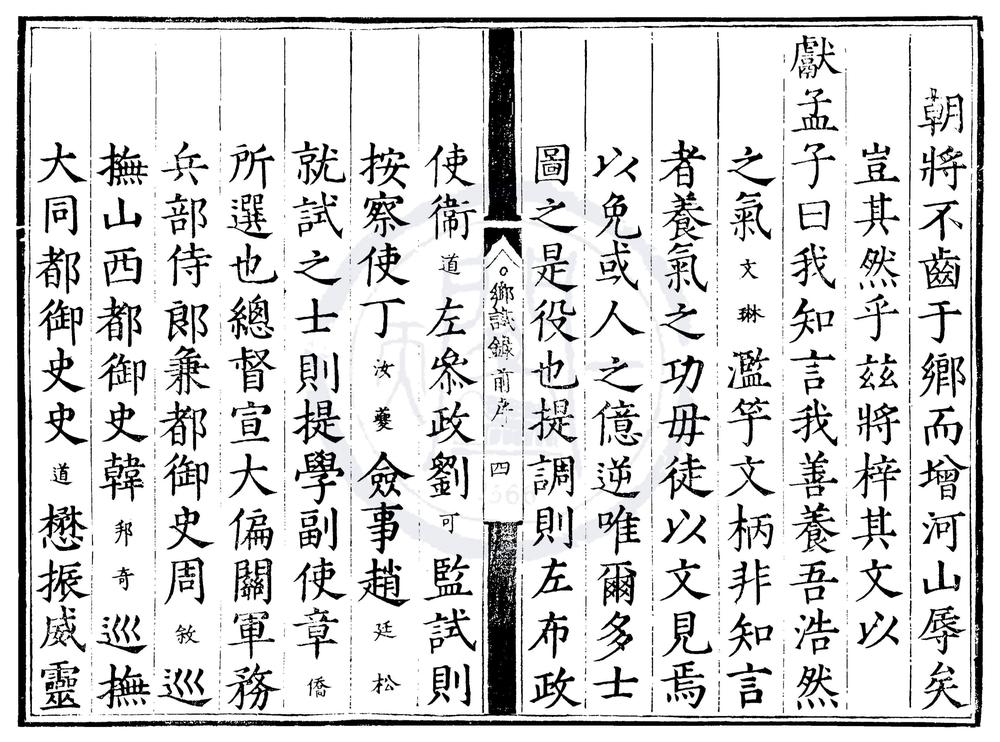 朝將不齒于鄉而增河山辱矣
豈其然乎茲將梓其文以
獻孟子曰我知言我善養吾浩然
之氣文琳濫竽文柄非知言
者養氣之功毋徒以文見焉
以免或人之億逆唯爾多士
圖之是役也提調則左布政
鄉試錄前序 四
使衞道左叅政劉可監試則
按察使丁汝夔僉事趙廷松
就試之士則提學副使章僑
所選也總督宣大偏關軍務
兵部侍郎兼都御史周敘巡
撫山西都御史韓邦奇巡撫
大同都御史史道懋振威靈